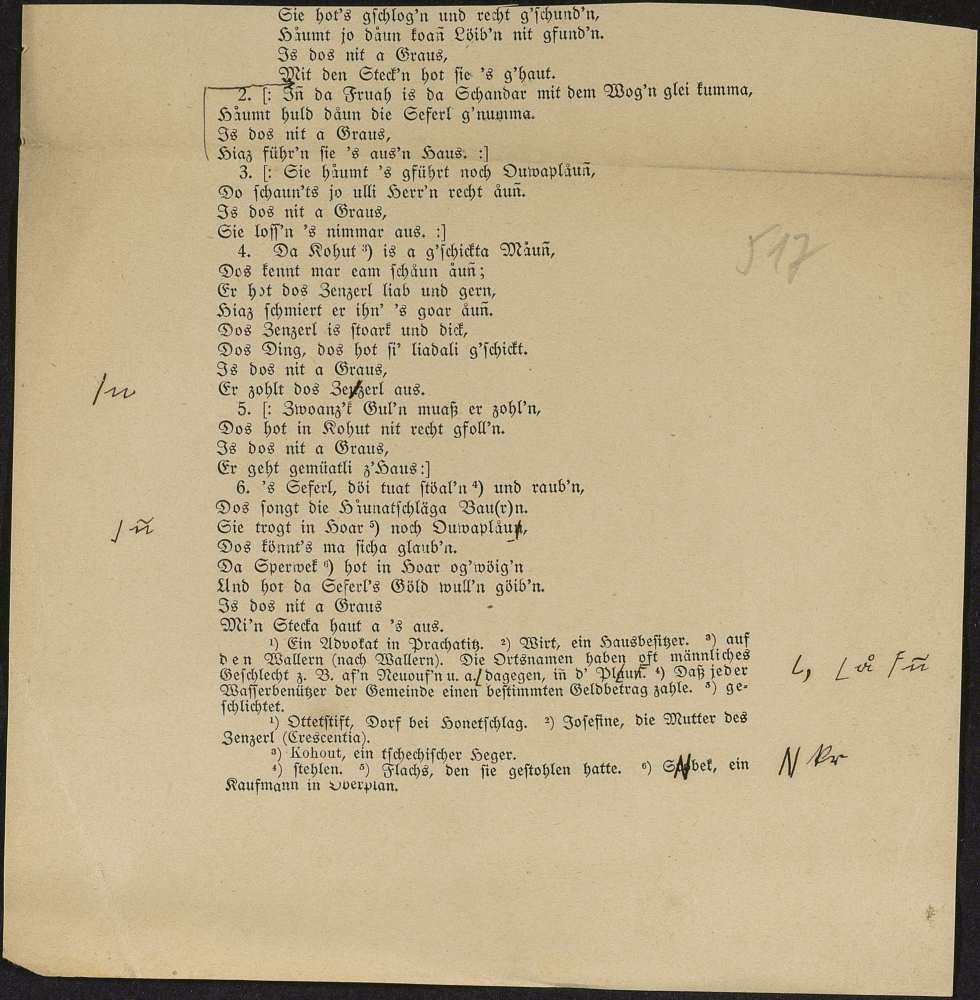 Sie hot's gschlog'n und recht g'schund'n,
Håumt jo dåun koañ Löib'n nit gfund'n.
Is dos nit a Graus,
Mit den Steck'n hot sie 's g'haut.
2. [: Iñ da Fruah is da Schandar mit dem Wog'n glei kumma,
Håumt huld dåun die Seferl g'numma.
Is dos nit a Graus,
Hiaz führ'n sie 's aus'n Haus. :]
3. [: Sie håumt 's gführt noch Ouwaplåuñ,
Do schaun'ts jo ulli Herr'n recht åuñ.
Is dos nit a Graus,
Sie loss'n 's nimmar aus. :]
517
4. Da Kohut ³) is a g'schickta Måuñ,
Dos kennt mar eam schåun åuñ;
Er hot dos Zenzerl liab und gern,
Hiaz schmiert er ihn' 's goar åuñ.
Dos Zenzerl is stoark und dick,
Dos Ding, dos hot si' liadali g'schickt.
Is dos nit a Graus,
Er zohlt dos Zenzerl aus.
n
5. [: Zwoanz'k Gul'n muaß er zohl'n,
Dos hot in Kohut nit recht gfoll'n.
Is dos nit a Graus,
Er geht gemüatli z'Haus :]
6. 's Seferl, döi tuat stöal'n ⁴) und raub'n,
Dos songt die Håunatschläga Bau(r)n.
Sie trogt in Hoar ⁵) noch Ouwaplåun,
ñ
Dos könnt's ma sicha glaub'n.
Da Sperwek ⁶) hot in Hoar og'wöig'n
Und hot da Seferl's Göld wull'n göib'n.
Is dos nit a Graus
Mi'n Stecka haut a 's aus.
¹) Ein Advokat in Prachatitz. ²) Wirt, ein Hausbesitzer. ³) auf
den Wallern (nach Wallern). Die Ortsnamen haben oft männliches
Geschlecht z. B. af'n Neuouf'n u. a. dagegen, iñ d' Plauñ. ⁴) Daß jeder
, å ñ
Wasserbenützer der Gemeinde einen bestimmten Geldbetrag zahle. ⁵) ge-
schlichtet.
¹) Ottetstift, Dorf bei Honetschlag. ²) Josefine, die Mutter des
Zenzerl (Crescentia).
³) Kohout, ein tschechischer Heger.
⁴) stehlen. ⁵) Flachs, den sie gestohlen hatte. ⁶) bek, ein
kr
Kaufmann in Oberplan.